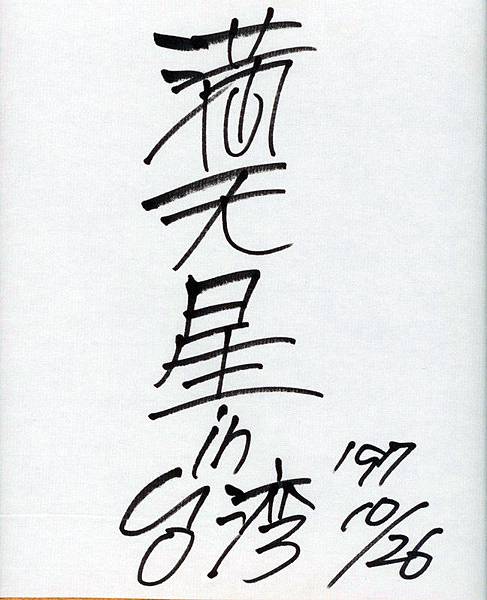 満天星
in
台湾
'97
10/26